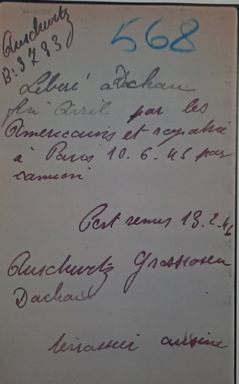 Auschwitz
B: 3783
568
Libéré à Dachau
fin Avril par les
Américains et rapatrié
à Paris 10.6.45 par
camion
remis 13.2.46
Auschwitz Grossrosen
Dachau
terrassier